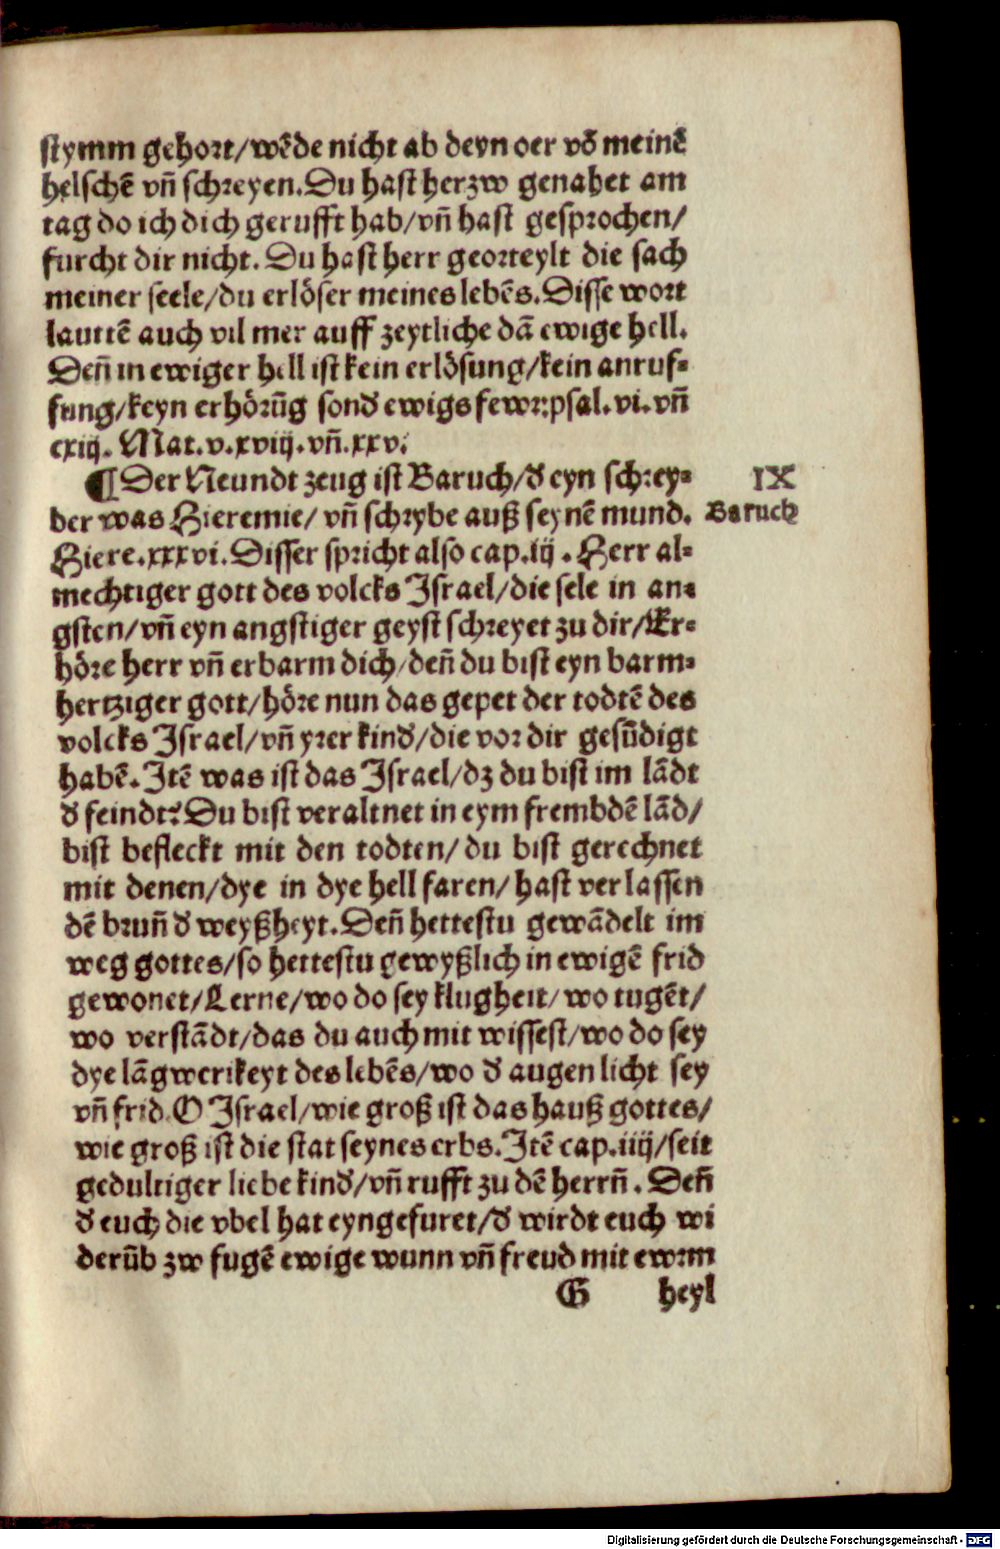 stymm gehort/wēde nicht ab deyn oer vō meinē
helschē vn̄ schreyen. Du hast herzw genahet am
tag do ich dich gerufft hab/vn̄ hast gesprochen/
furcht dir nicht. Du hast herr georteylt die sach
meiner seele/du erlöser meines lebēs. Disse wort
lauttē auch vil mer auff zeytliche dā ewige hell.
Den̄ in ewiger hell ist kein erlösung/kein anruf-
fung/keyn erhörūg sonđ ewigs fewr:psal.vi.vn̄
cxiij. Mat.v.xviij.vn̄.xxv.
¶ Der Neundt zeug ist Baruch/đ eyn schrey-
ber was Hieremie/ vn̄ schrybe auß seynē mund.
Hiere.xxxvi. Disser spricht also cap.iij. Herr al-
mechtiger gott des volcks Israel/die sele in an-
gsten/vn̄ eyn angstiger geyst schreyet zu dir/Er-
höre herr vn̄ erbarm dich/den̄ du bist eyn barm-
hertziger gott/höre nun das gepet der todtē des
volcks Israel/vn̄ yrer kinđ/die vor dir gesūdigt
habē. Itē was ist das Israel/dz du bist im lādt
đ feindt? Du bist veraltnet in eym frembdē lād/
bist befleckt mit den todten/du bist gerechnet
mit denen/dye in dye hell faren/hast verlassen
dē brun̄ đ weyßheyt. Den̄ hettestu gewādelt im
weg gottes/so hettestu gewyßlich in ewigē frid
gewonet/Lerne/wo do sey klugheit/wo tugēt/
wo verstādt/das du auch mit wissest/wo do sey
dye lāgwerikeyt des lebēs/wo đ augen licht sey
vn̄ frid. O Israel/wie groß ist das hauß gottes/
wie groß ist die stat seynes erbs. Itē cap.iiij/seit
gedultiger liebe kinđ/vn̄ rufft zu dē herrn̄. Den̄
đ euch die vbel hat eyngefuret/đ wirdt euch wi
derūb zw fugē ewige wunn vn̄ freud mit ewrm
G heyl
IX
Baruch
Digitalisierung gefördert durch die Deutsche Forschungsgemeinschaft - DFG